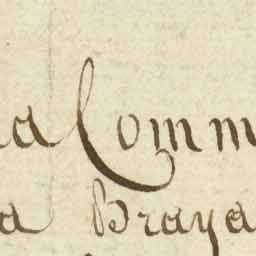 a Comm
a Braya